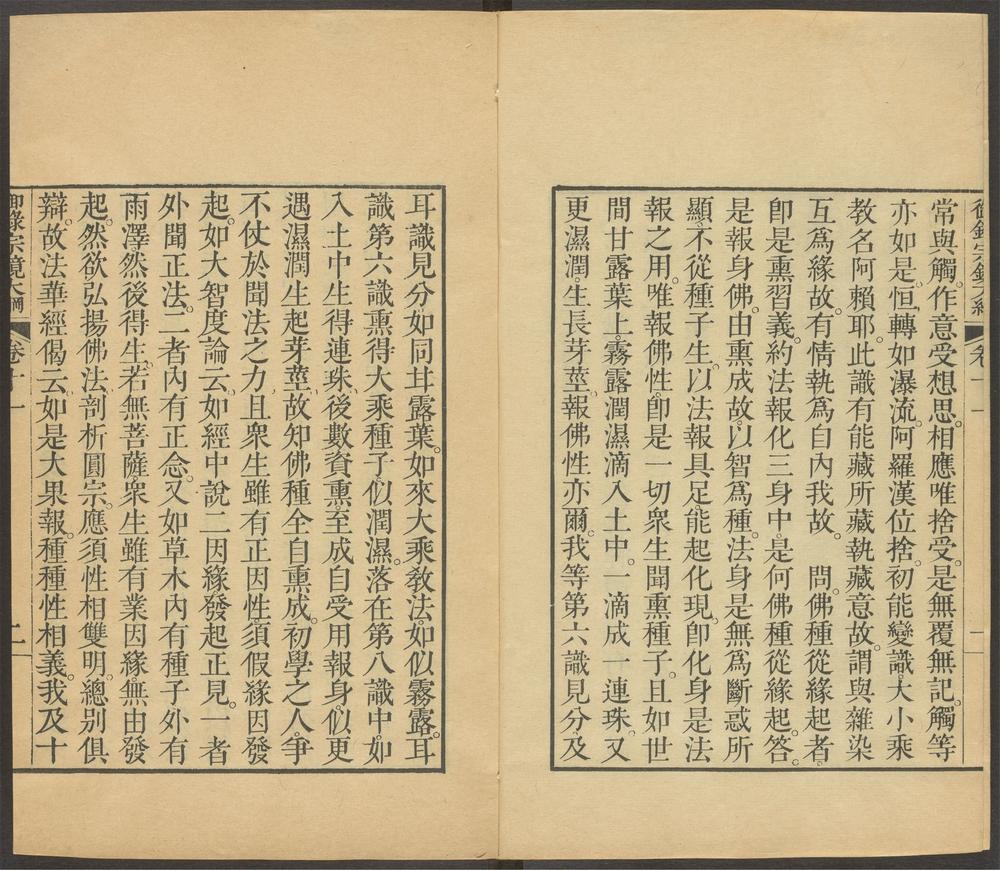 常與觸。作意受想思。相應唯捨受。是無覆無記。觸等
亦如是。恒轉如瀑流。阿羅漢位捨。初能變識。大小乘
教名阿賴耶。此識有能藏所藏執藏意故。謂與雜染
互為緣故。有情執為自內我故。　問。佛種從緣起者
卽是熏習義。約法報化三身中。是何佛種從緣起。答。
是報身佛。由熏成故。以智為種。法身是無為斷惑所
顯。不從種子生。以法報具足。能起化現。卽化身是法
報之用。唯報佛性。卽是一切眾生聞熏種子。且如世
間甘露葉上。霧露潤濕滴入土中。一滴成一連珠。又
更濕潤。生長芽莖。報佛性亦爾。我等第六識見分及
耳識見分。如同甘露葉。如來大乘敎法。如似霧露。耳
識第六識熏得大乘種子。似潤濕。落在第八識中。如
入土中生得連珠。後數資熏。至成自受用報身。似更
遇濕潤生起芽莖。故知佛種全自熏成。初學之人。爭
不仗於聞法之力。且眾生雖有正因性。須假緣因發
起。如大智度論云。如經中說二因緣發起正見。一者
外聞正法。二者內有正念。又如草木內有種子外有
雨澤。然後得生。若無菩薩。眾生雖有業因緣。無由發
起。然欲弘揚佛法。剖析圓宗。應須性相雙明。總別俱
辯。故法華經偈云。如是大果報。種種性相義。我及十
御錄宗鏡大綱　卷十一　二